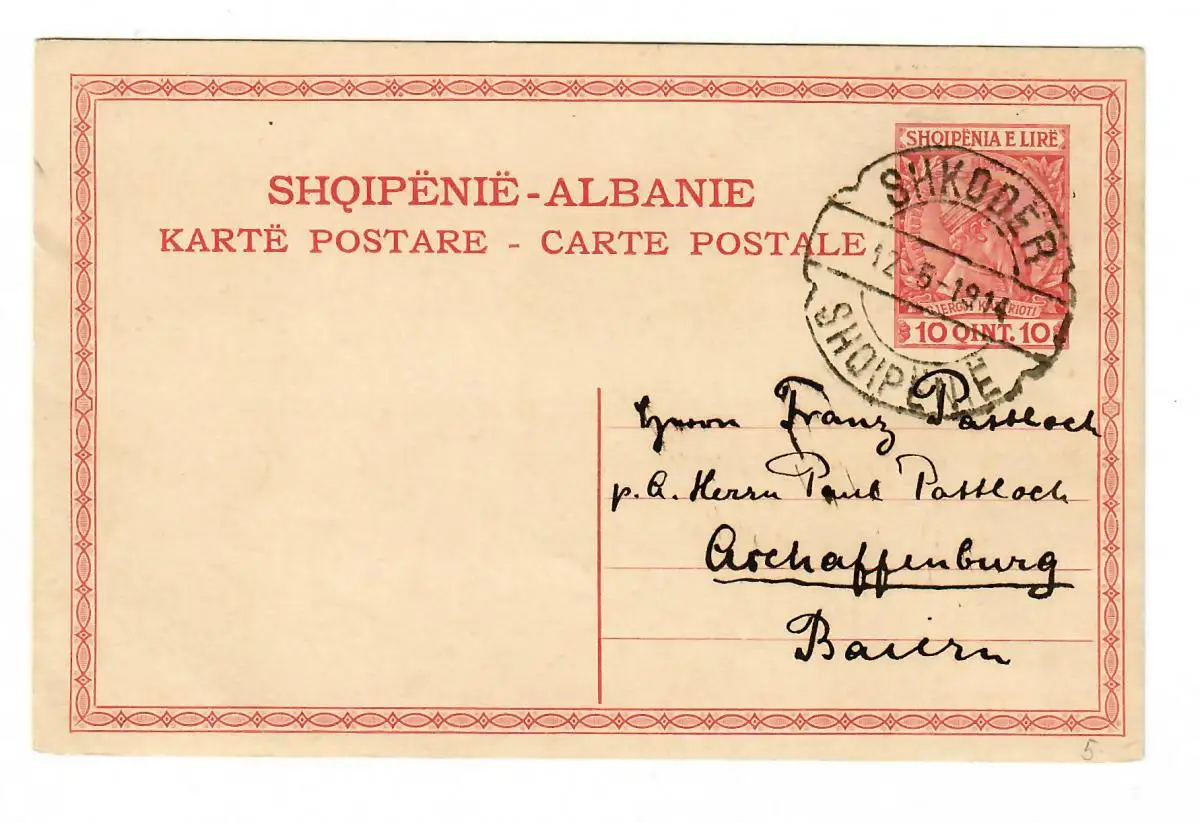 SHQIPËNIË - ALBANIE
KARTË POSTARE - CARTE POSTALE
SHQIPËNIA E LIRË
10 QINT. 10
SHKODËR
12-5-1914
SHQIPËNIË
Herrn Franz Pattloch
p. A. Herrn Paul Pattloch
Aschaffenburg
Baiern
5